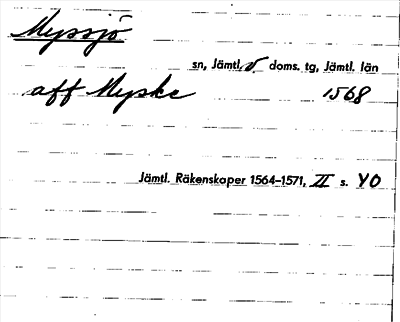 Myssjö
sn, Jämtl. v. doms. tg, Jämtl. län
aff Myske 1568
Jämtl. Räkenskaper 1564-1571, II s. 40